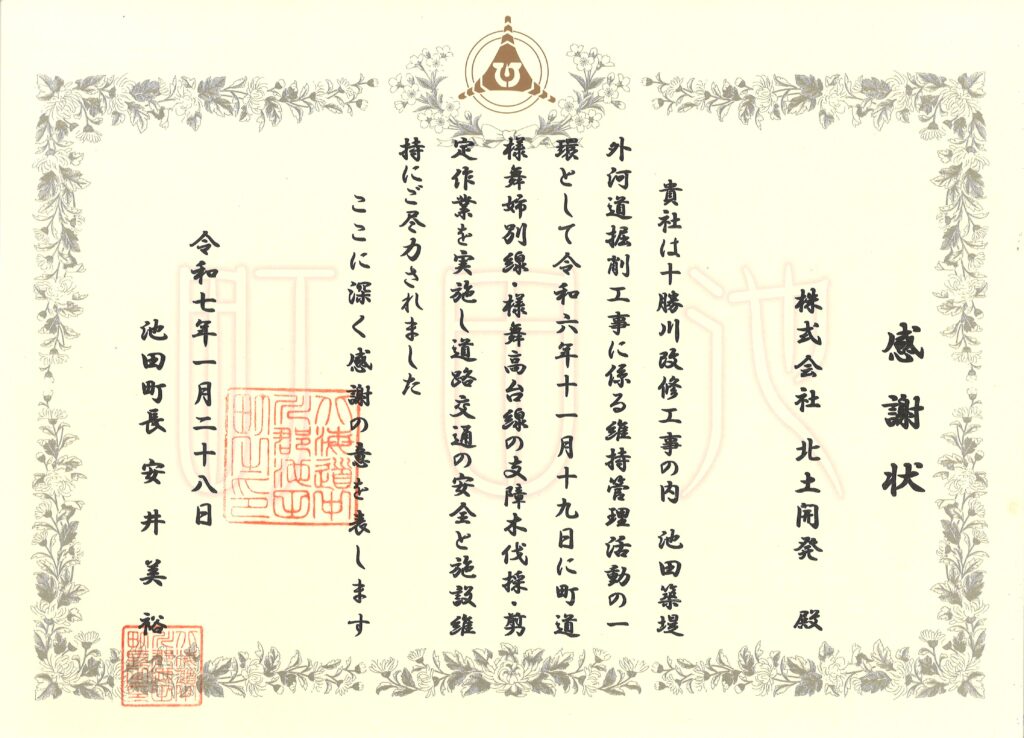 感謝状
株式会社 北土開発 殿
貴社は十勝川改修工事の内 池田築堤
外河道掘削工事に係る維持管理活動の一
環として令和六年十一月十九日に町道
様舞姉別線・様舞高台線の支障木伐採・剪
定作業を実施し道路交通の安全と施設維
持にご尽力されました
ここに深く感謝の意を表します
令和七年一月二十八日
池田町長 安井美裕
池田町
北海道中
川郡池田
町之印